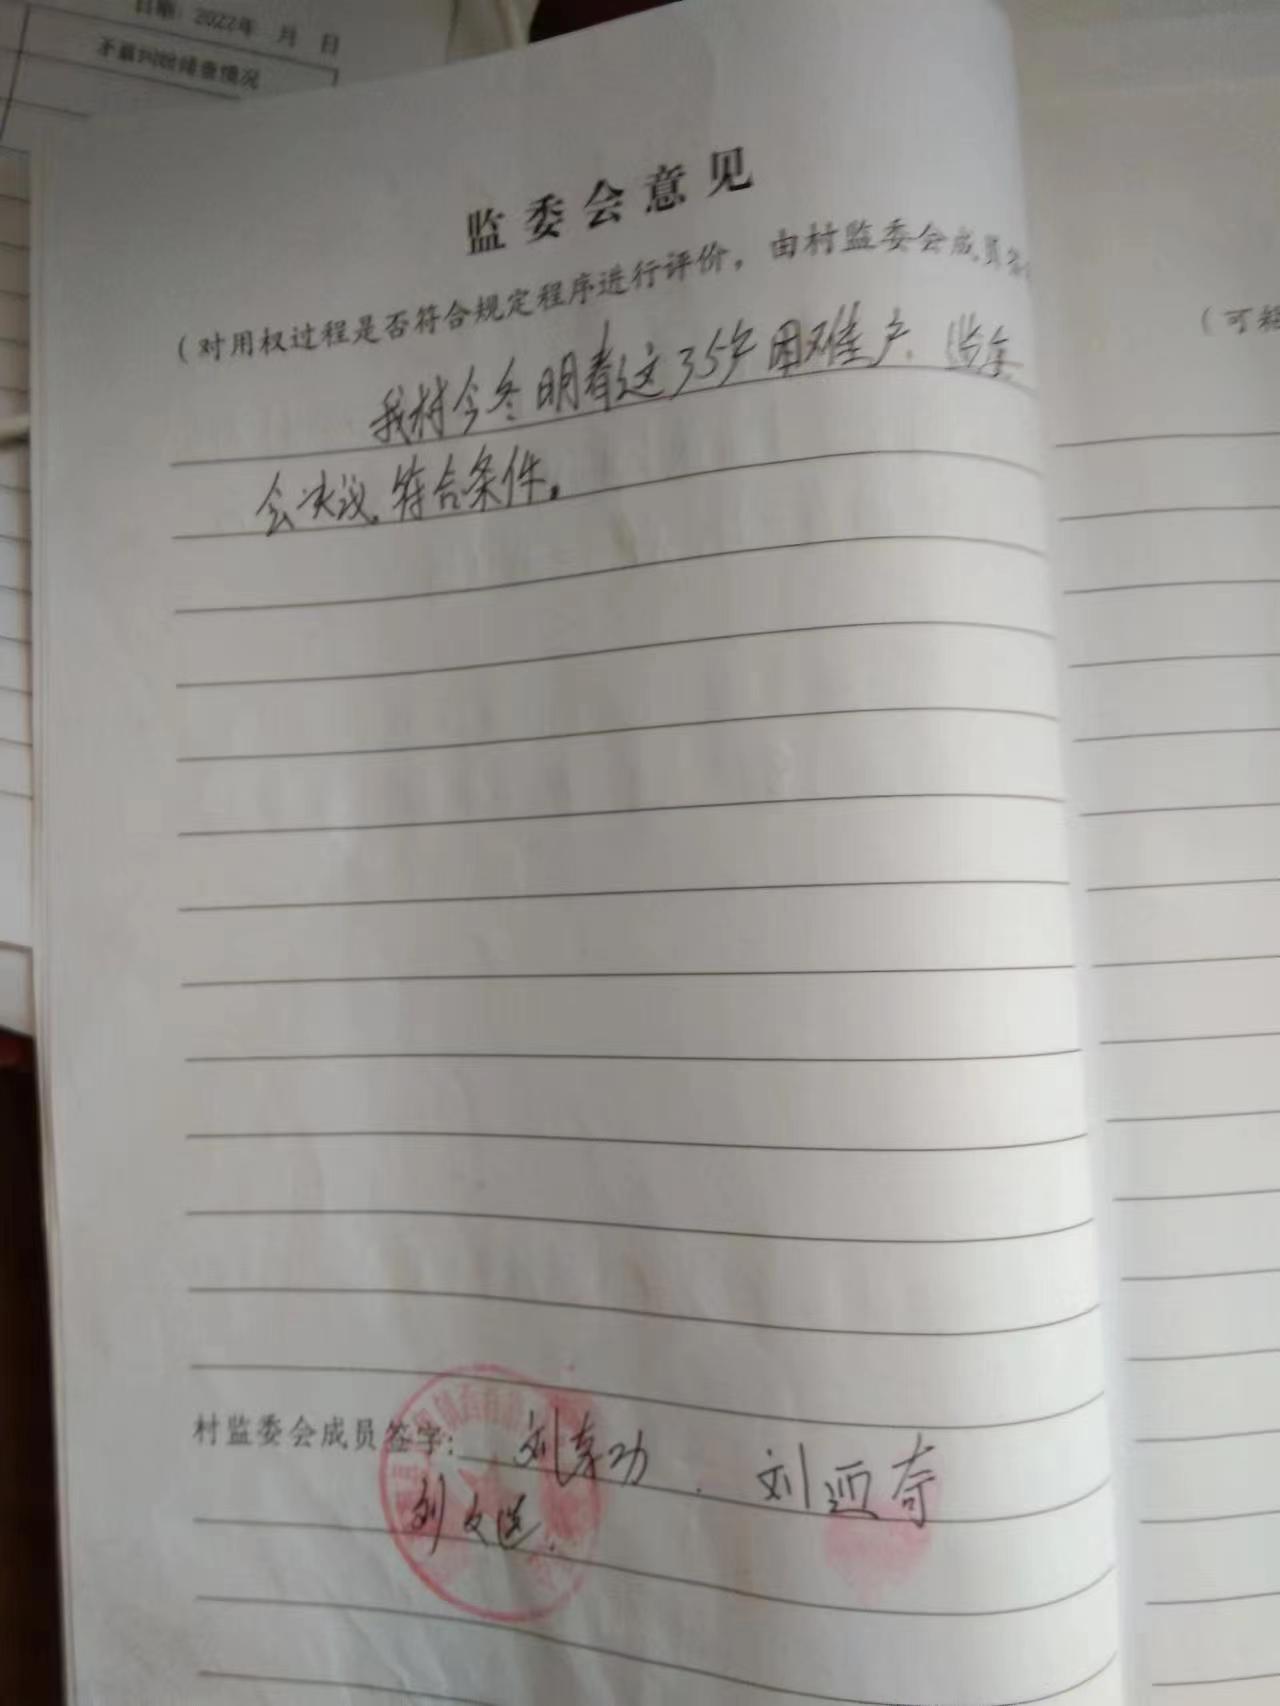 日期: 2022年 月 日
矛盾纠纷排查情况
监委会意见
(对用权过程是否符合规定程序进行评价，由村监委会成员
我村今冬明春这35户困难户, 监委
会决议, 符合条件。
(可
村监委会成员签字:
刘亚奇
刘文